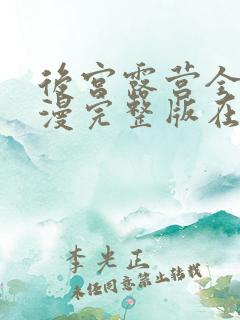 后宫露营全
漫完整版在
李光正
未经同意禁止转载